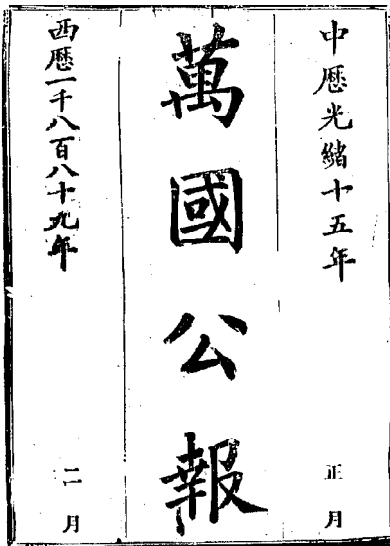 中歷光緒十五年 正月
萬國公報
西歷一千八百八十九年 二月